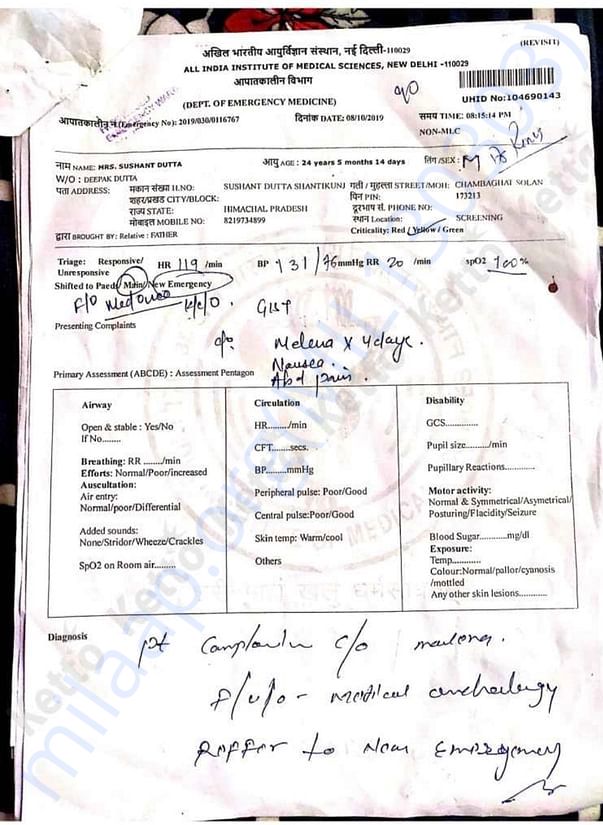 (REVISIT)
अखिल भारतीय आयुर्विज्ञान संस्थान, नई दिल्ली-110029
ALL INDIA INSTITUTE OF MEDICAL SCIENCES, NEW DELHI -110029
आपातकालीन विभाग
(DEPT. OF EMERGENCY MEDICINE)
UHID No:104690143
आपातकालीन नं (Emergency No): 2019/030/0116767 दिनांक DATE: 08/10/2019 समय TIME: 08:15:14 PM
NON-MLC
नाम NAME: MRS. SUSHANT DUTTA आयु AGE : 24 years 5 months 14 days लिंग /SEX : M
W/O : DEEPAK DUTTA
पता ADDRESS: मकान संख्या H.NO: SUSHANT DUTTA SHANTIKUNJ गली / मुहल्ला STREET/MOH: CHAMBAGHAT SOLAN
शहर/प्रखंड CITY/BLOCK: पिन PIN: 173213
राज्य STATE: HIMACHAL PRADESH दूरभाष सं. PHONE NO:
मोबाइल MOBILE NO: 8219734899 स्थान Location: SCREENING
द्वारा BROUGHT BY: Relative : FATHER Criticality: Red / Yellow / Green
Triage: Responsive/ HR 119 /min BP 131/76 mmHg RR 20 /min spO2 100%
Unresponsive
Shifted to Paeds/Main/New Emergency
K/C/O. GIST
Presenting Complaints
c/o Melena x 4 days.
Nausea.
Abd pain.
Primary Assessment (ABCDE) : Assessment Pentagon
Airway
Open & stable : Yes/No
If No........
Breathing: RR ......../min
Efforts: Normal/Poor/increased
Auscultation:
Air entry:
Normal/poor/Differential
Added sounds:
None/Stridor/Wheeze/Crackles
SpO2 on Room air.........
Circulation
HR........./min
CFT.......secs.
BP.........mmHg
Peripheral pulse: Poor/Good
Central pulse:Poor/Good
Skin temp: Warm/cool
Others
Disability
GCS..............
Pupil size........../min
Pupillary Reactions.............
Motor activity:
Normal & Symmetrical/Asymetrical/
Posturing/Flacidity/Seizure
Blood Sugar..........mg/dl
Exposure:
Temp............
Colour:Normal/pallor/cyanosis
/mottled
Any other skin lesions............
Diagnosis
pt Complain c/o malena.
f/u/o - medical oncholugy
Reffer to New Emergency
Ketto
milaap.org